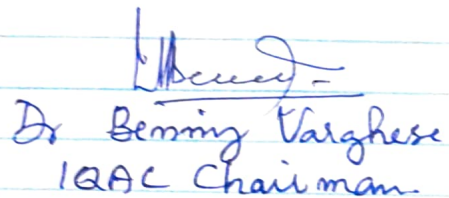 Dr Benniy Varghese
IQAC Chairman